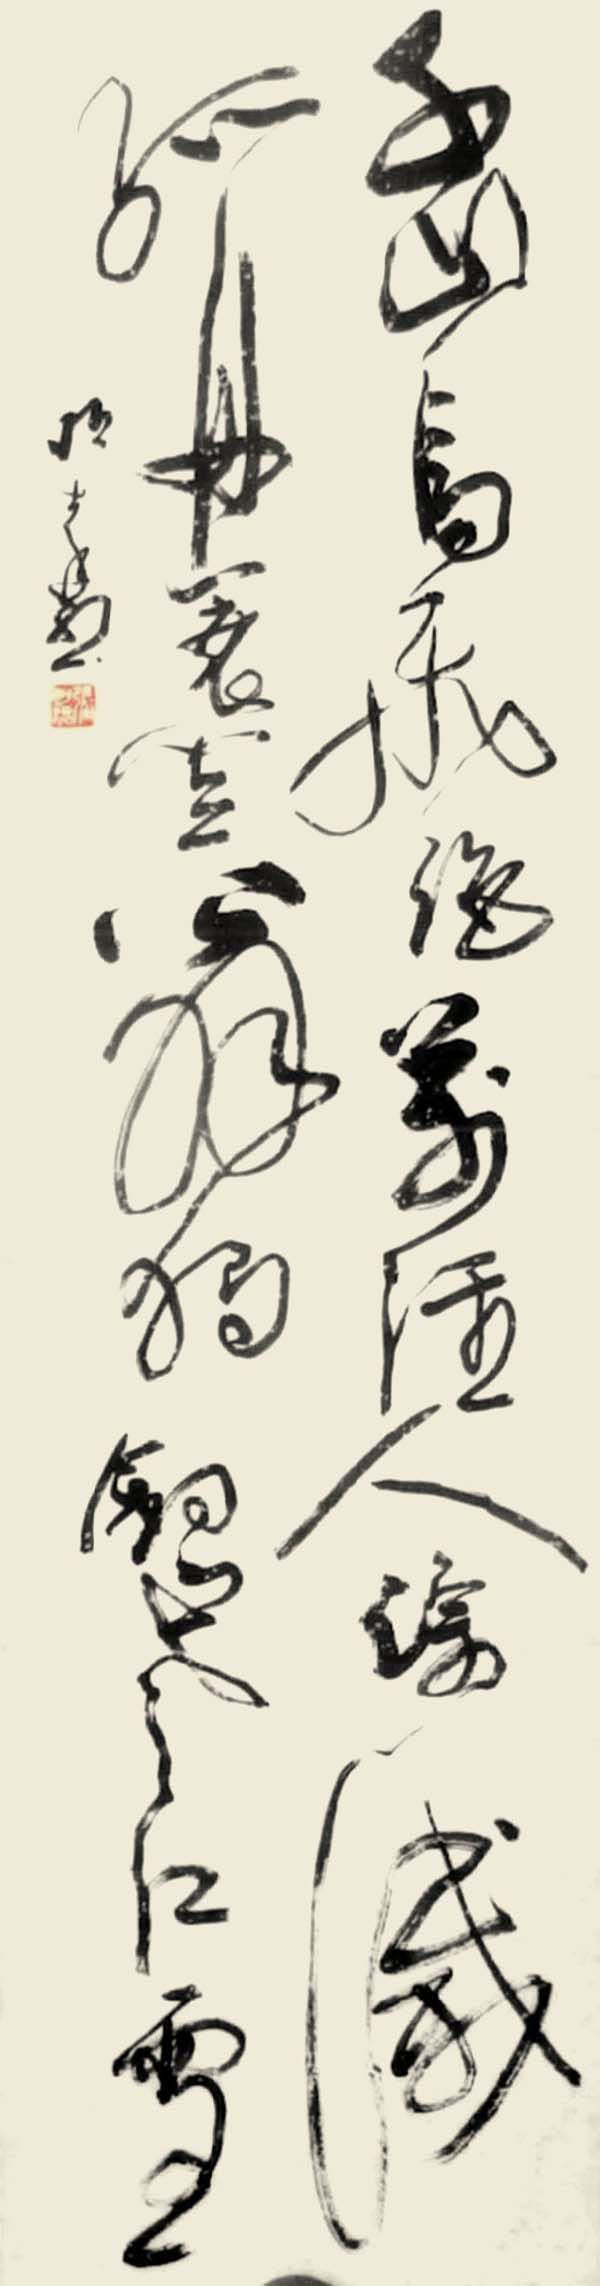 千山鳥飛絕萬徑人蹤滅
孤舟蓑笠翁獨釣寒江雪